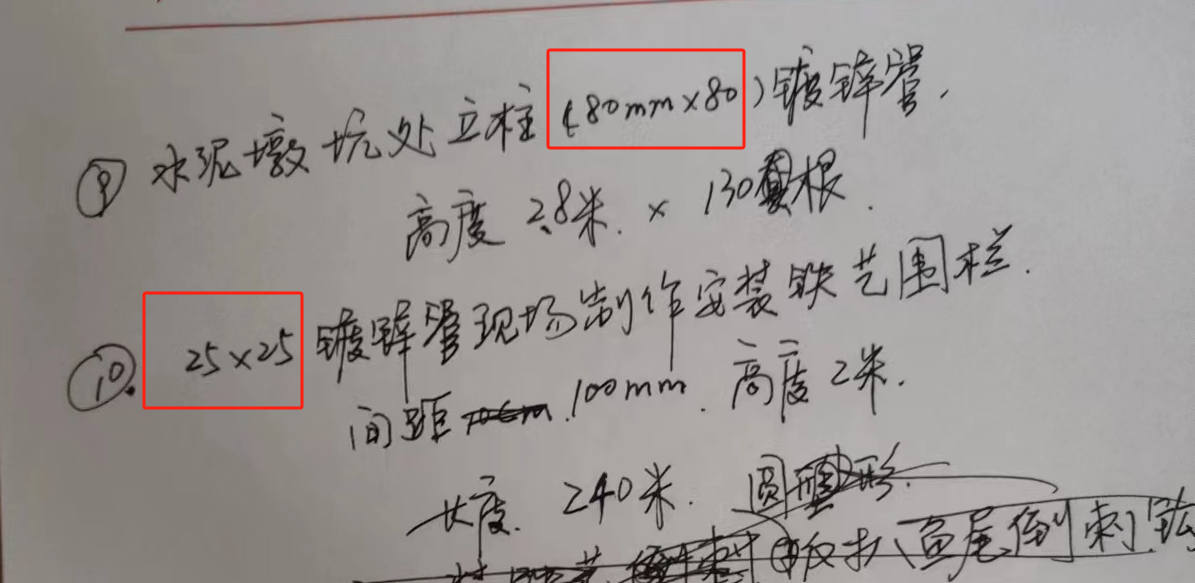 ⑨ 水泥墩坑处立柱(80mm×80)镀锌管.
高度 2.8米. × 130根.
⑩. 25×25镀锌管现场制作安装铁艺围栏.
间距 100mm. 高度2米.
长度. 240米. 圆形.
鱼尾倒刺